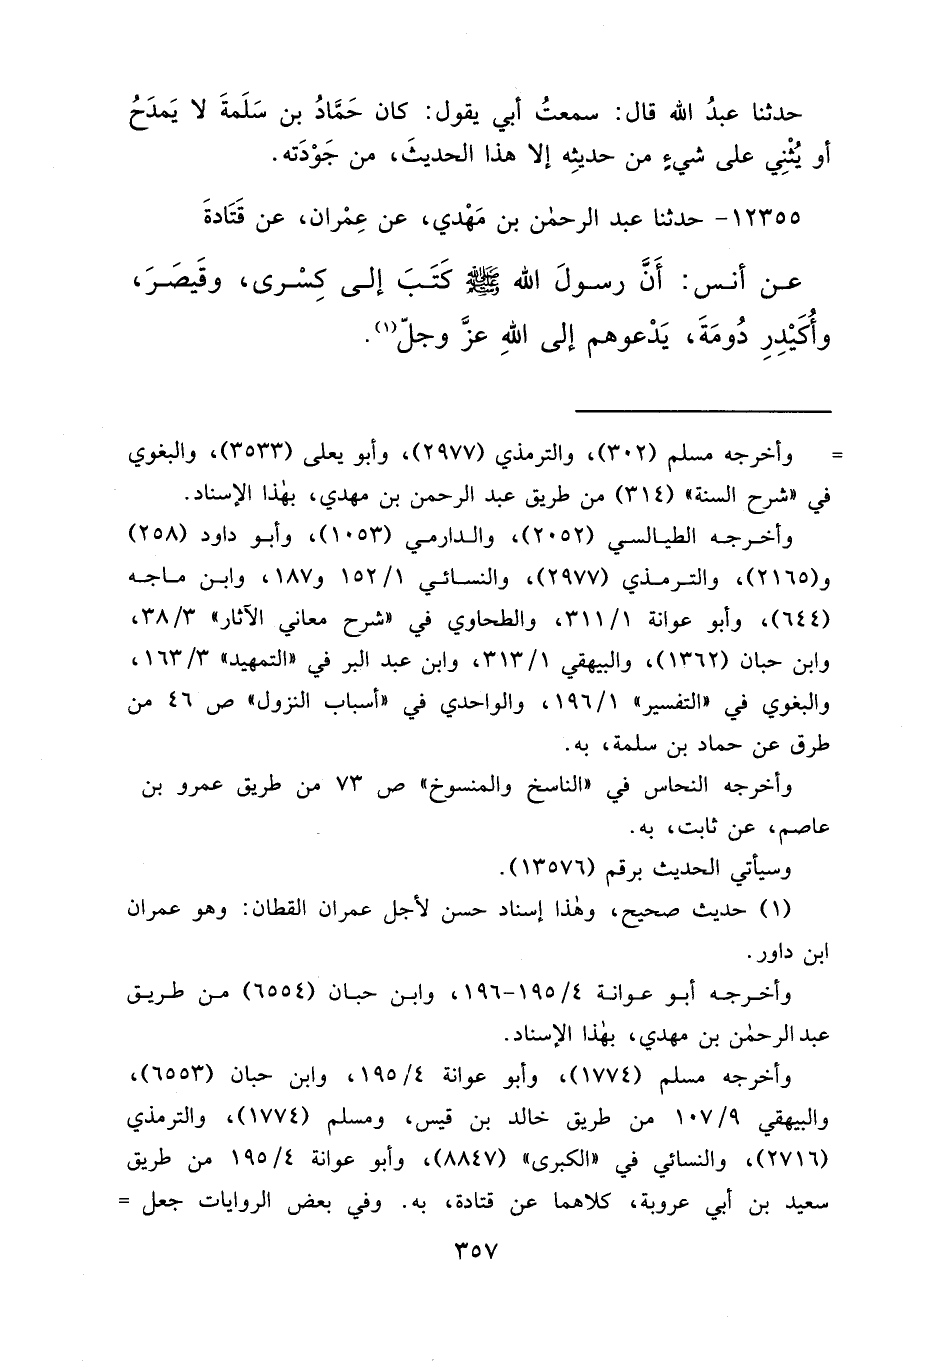 حدثنا عبدُ الله قال: سمعتُ أبي يقول: كان حَمَّادُ بن سَلَمةَ لا يَمدَحُ
أو يُثْنِي على شيءٍ من حديثِه إلا هذا الحديثَ، من جَوْدَته.
١٢٣٥٥- حدثنا عبد الرحمٰن بن مَهْدي، عن عِمْران، عن قَتَادةَ
عـن أنـس: أَنَّ رسـولَ الله ﷺ كَتَبَ إلـى كِسْـرى، وقَيصَـرَ،
وأُكَيْدِرِ دُومَةَ، يَدْعوهم إلى اللهِ عزَّ وجلّ(١).
= وأخرجه مسلم (٣٠٢)، والترمذي (٢٩٧٧)، وأبو يعلى (٣٥٣٣)، والبغوي
في «شرح السنة» (٣١٤) من طريق عبد الرحمن بن مهدي، بهٰذا الإسناد.
وأخـرجـه الطيـالسـي (٢٠٥٢)، والـدارمـي (١٠٥٣)، وأبـو داود (٢٥٨)
و(٢١٦٥)، والتـرمـذي (٢٩٧٧)، والنسـائـي ١/ ١٥٢ و١٨٧، وابـن مـاجـه
(٦٤٤)، وأبو عوانة ١/ ٣١١، والطحاوي في «شرح معاني الآثار» ٣/ ٣٨،
وابن حبان (١٣٦٢)، والبيهقي ١/ ٣١٣، وابن عبد البر في «التمهيد» ٣/ ١٦٣،
والبغوي في «التفسير» ١/ ١٩٦، والواحدي في «أسباب النزول» ص ٤٦ من
طرق عن حماد بن سلمة، به.
وأخرجه النحاس في «الناسخ والمنسوخ» ص ٧٣ من طريق عمرو بن
عاصم، عن ثابت، به.
وسيأتي الحديث برقم (١٣٥٧٦).
(١) حديث صحيح، وهٰذا إسناد حسن لأجل عمران القطان: وهو عمران
ابن داور.
وأخـرجـه أبـو عـوانـة ٤/ ١٩٥-١٩٦، وابـن حبـان (٦٥٥٤) مـن طـريـق
عبد الرحمٰن بن مهدي، بهٰذا الإسناد.
وأخرجه مسلم (١٧٧٤)، وأبو عوانة ٤/ ١٩٥، وابن حبان (٦٥٥٣)،
والبيهقي ٩/ ١٠٧ من طريق خالد بن قيس، ومسلم (١٧٧٤)، والترمذي
(٢٧١٦)، والنسائي في «الكبرى» (٨٨٤٧)، وأبو عوانة ٤/ ١٩٥ من طريق
سعيد بن أبي عروبة، كلاهما عن قتادة، به. وفي بعض الروايات جعل =
٣٥٧